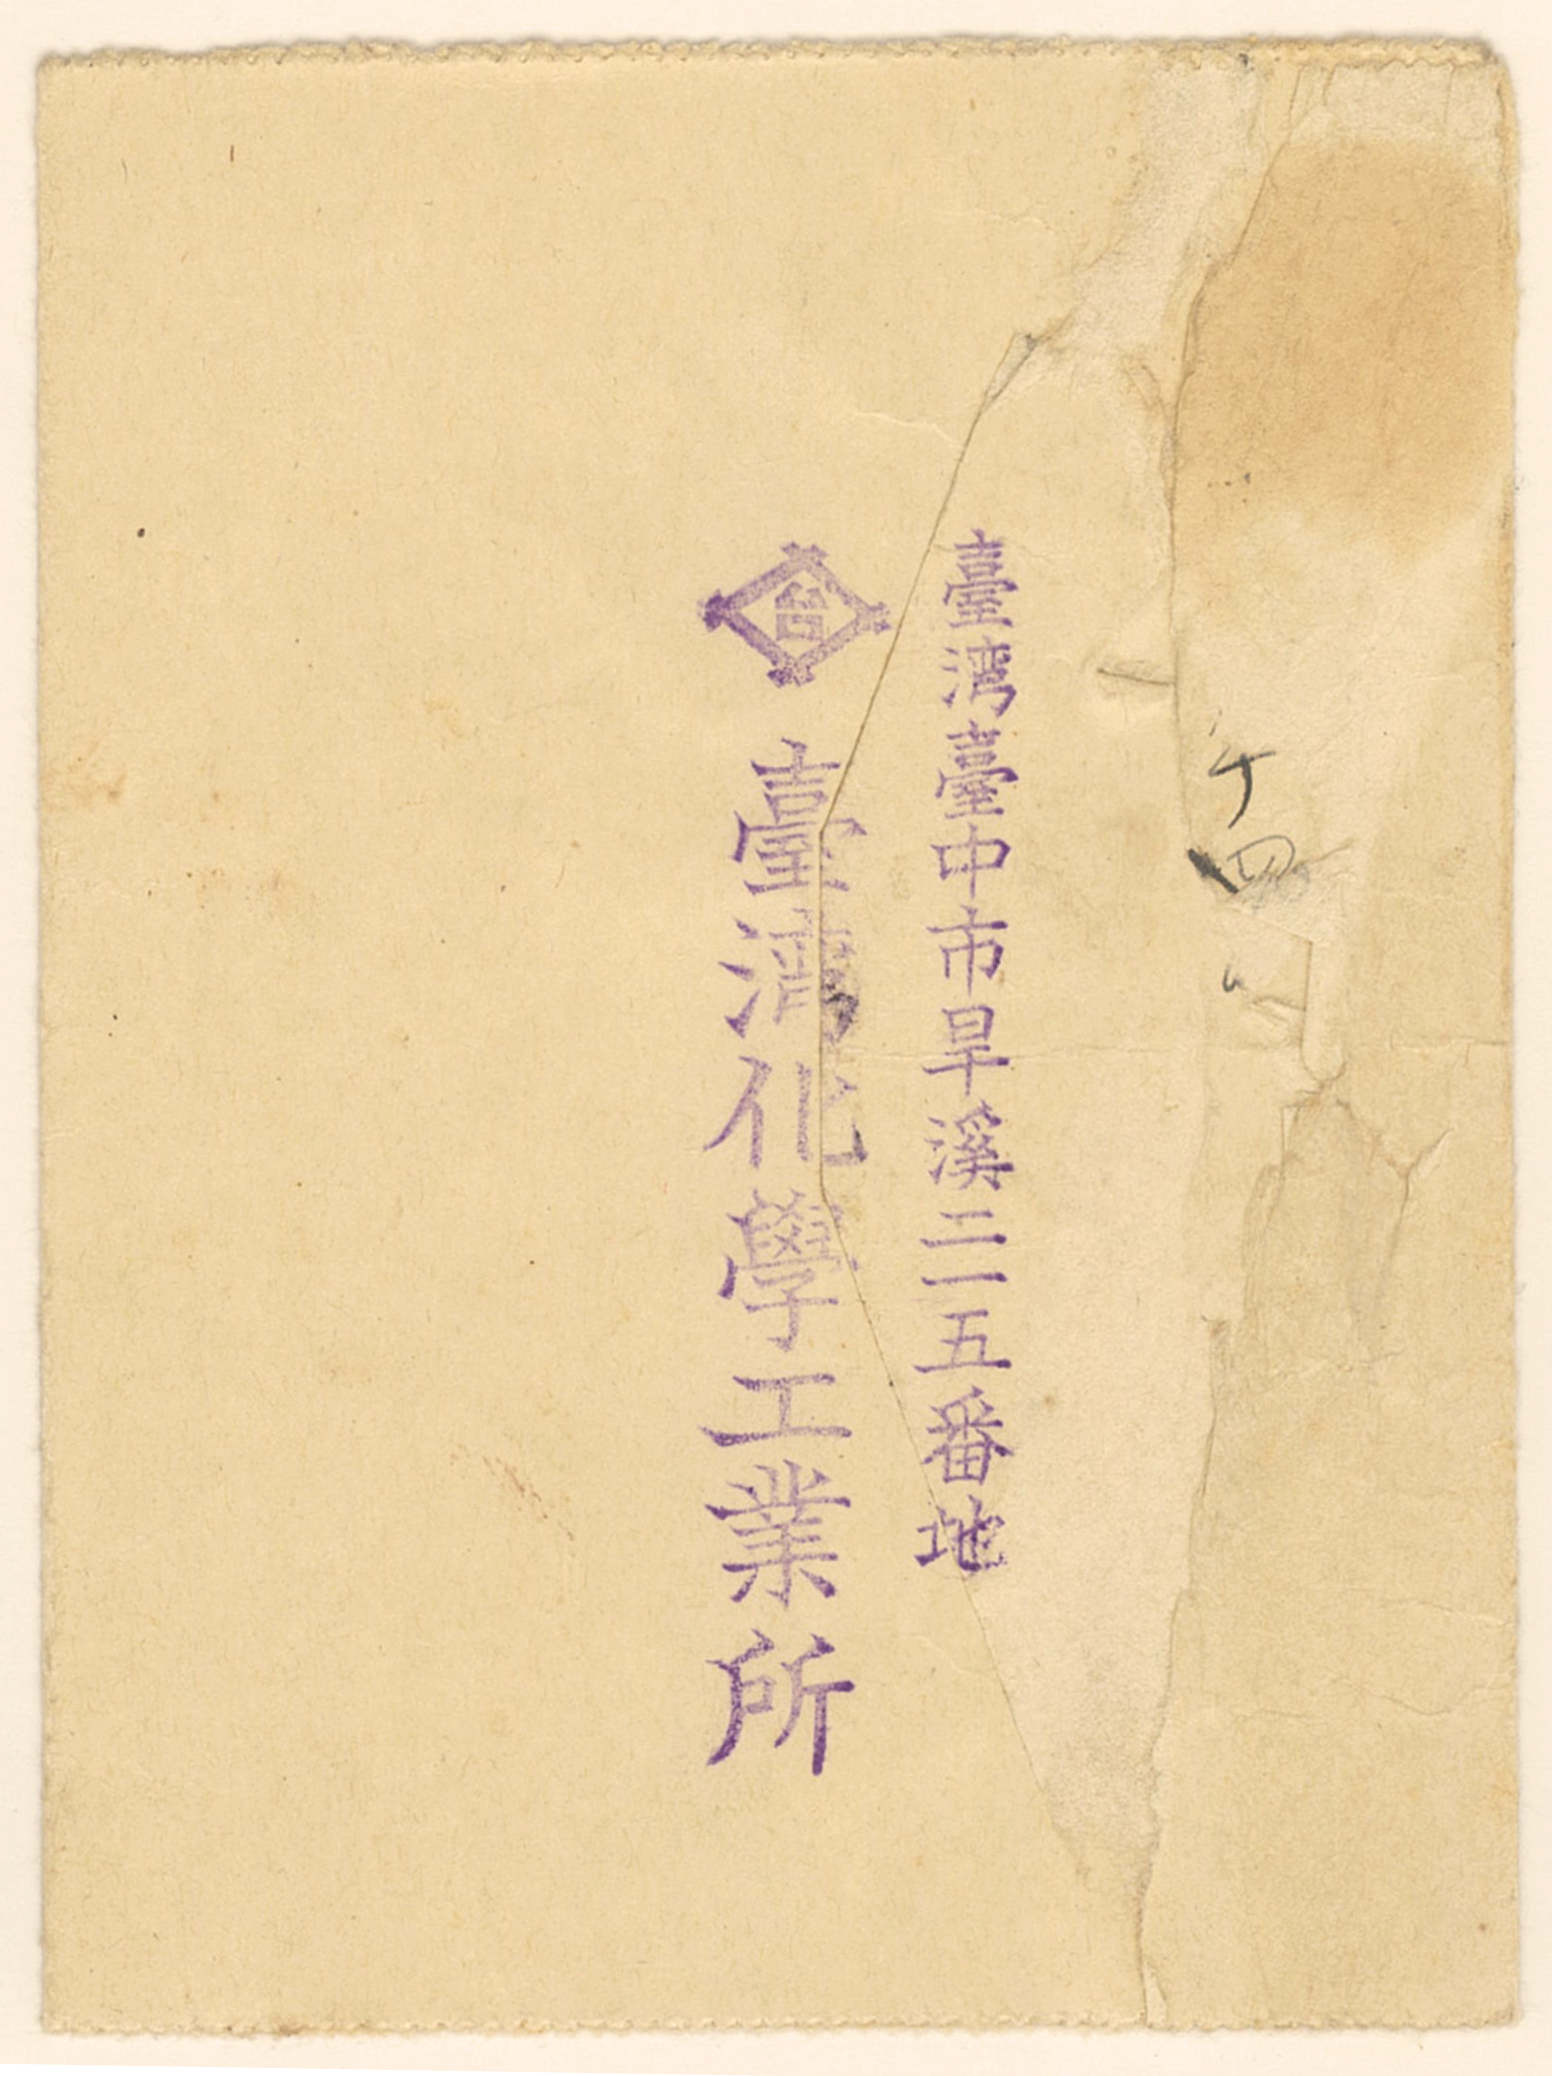 臺灣臺中市旱溪二一五番地
台 臺灣化學工業所